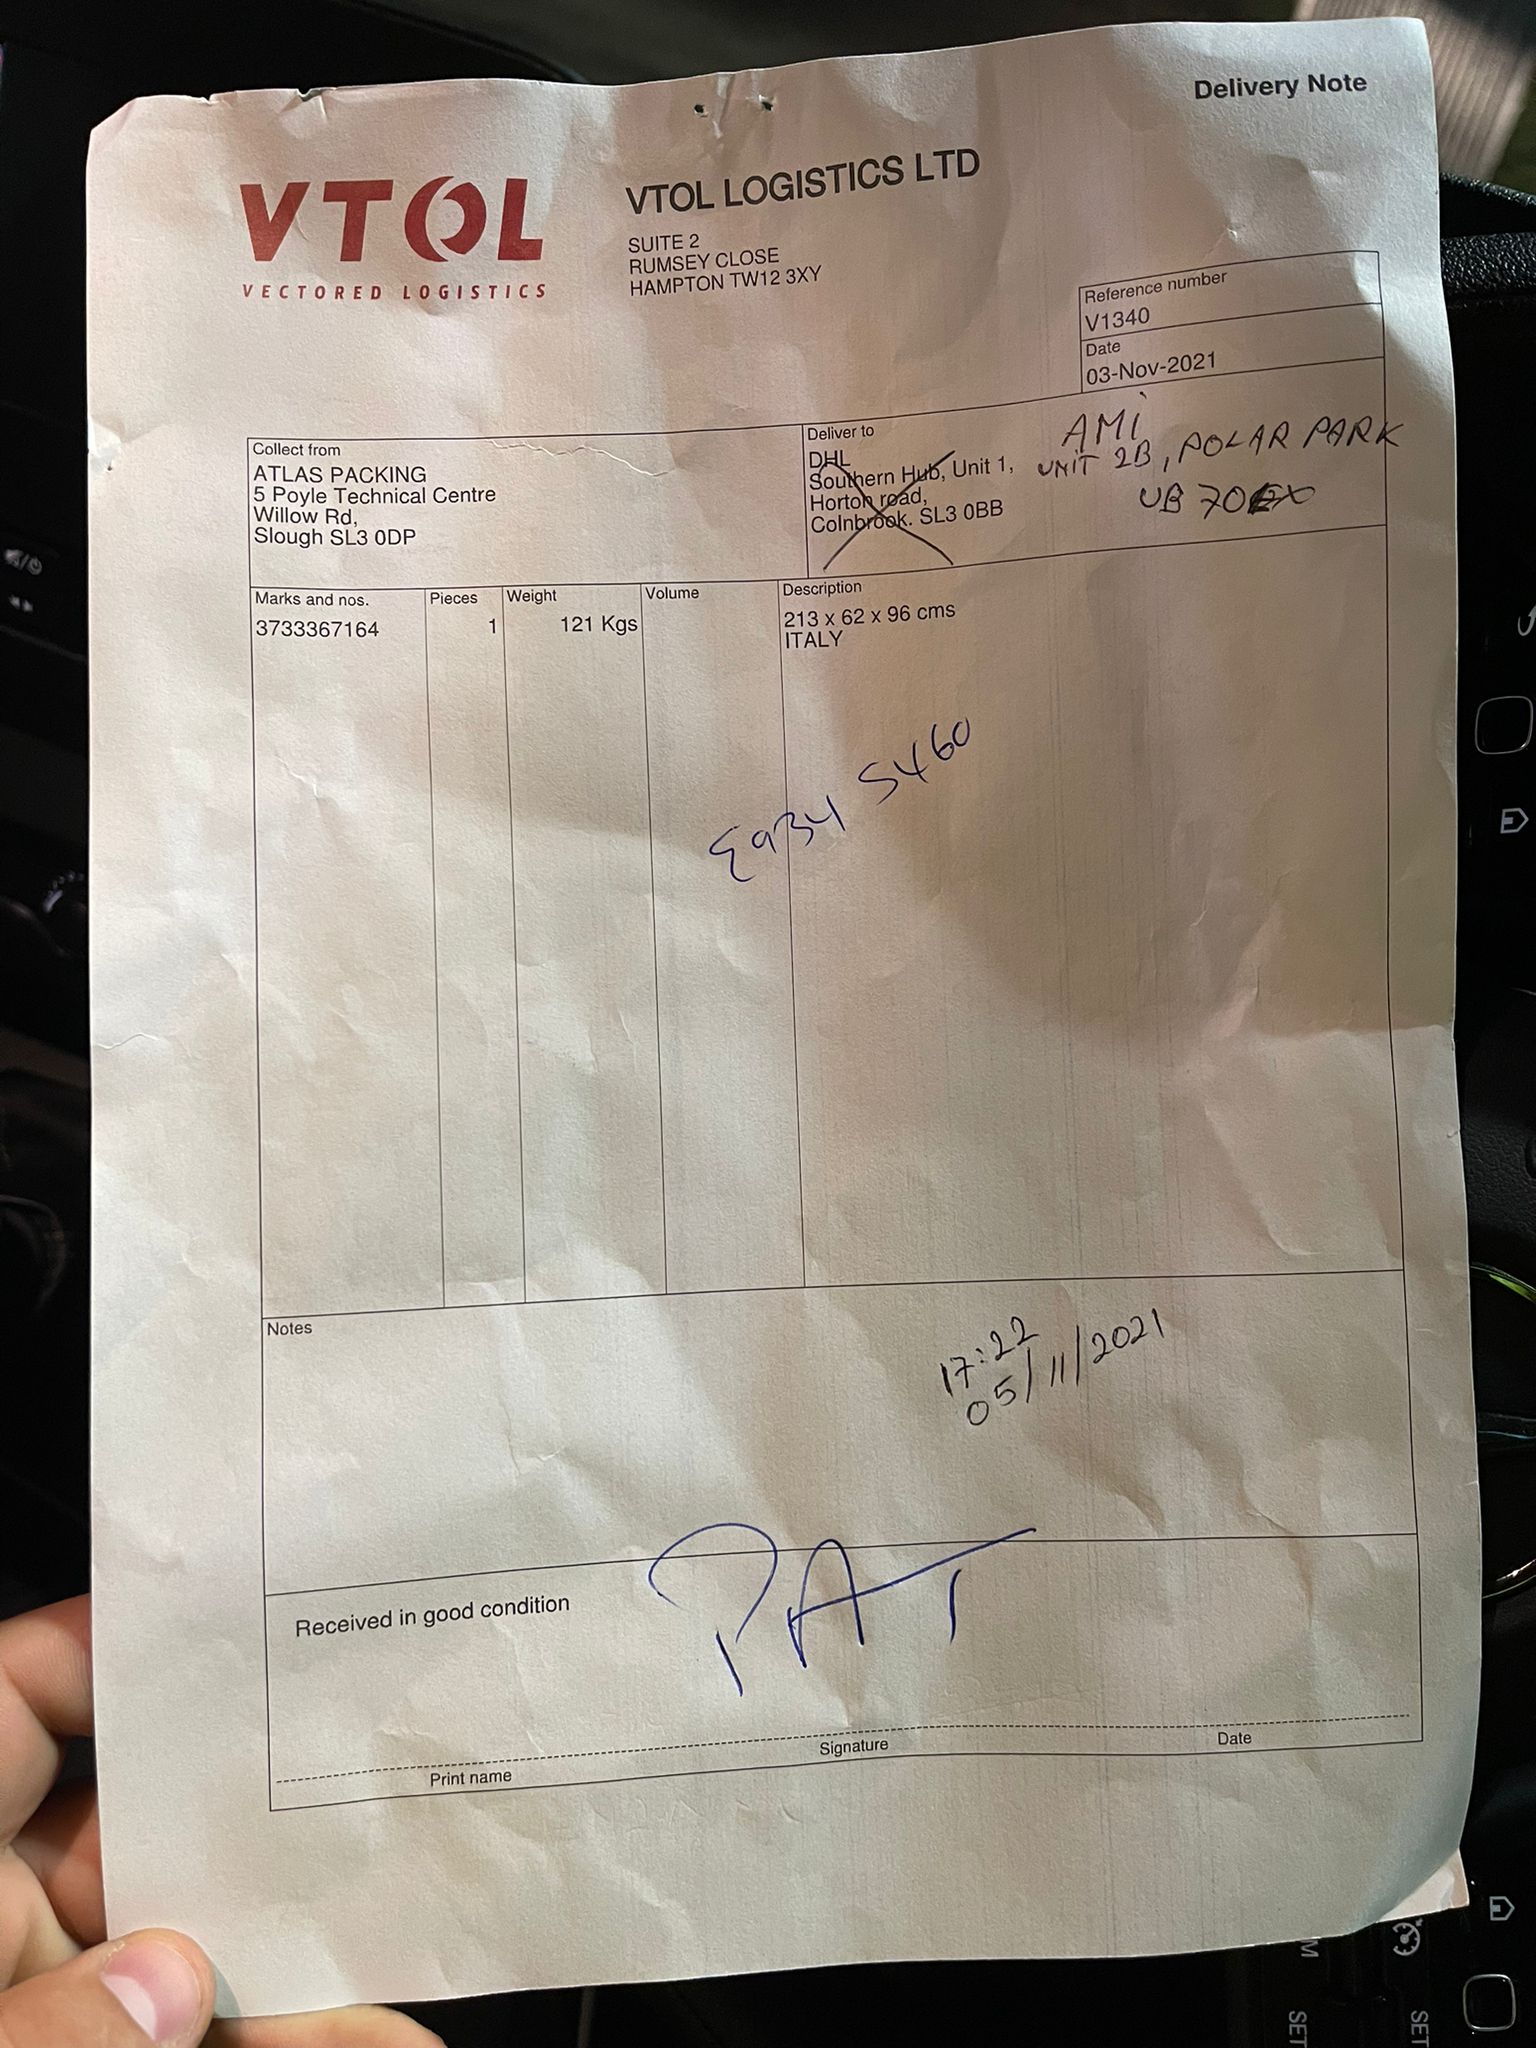 Delivery Note
VTOL
VECTORED LOGISTICS
VTOL LOGISTICS LTD
SUITE 2
RUMSEY CLOSE
HAMPTON TW12 3XY
Reference number
V1340
Date
03-Nov-2021
Collect from
ATLAS PACKING
5 Poyle Technical Centre
Willow Rd,
Slough SL3 0DP
Deliver to
DHL
Southern Hub, Unit 1,
Horton road,
Colnbrook. SL3 0BB
AMI
UNIT 2B, POLAR PARK
UB 70
Marks and nos.
Pieces
Weight
Volume
Description
3733367164
1
121 Kgs
213 x 62 x 96 cms
ITALY
E934 5460
Notes
17:22
05/11/2021
Received in good condition
PAT
Print name
Signature
Date
SET
SET